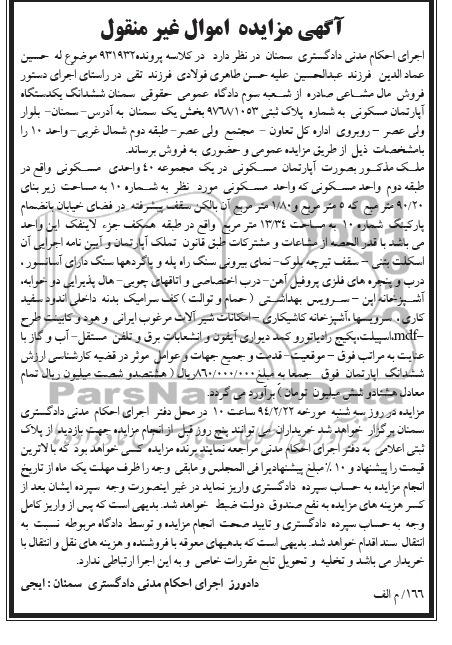 آگهی مزایده اموال غیر منقول
اجرای احکام مدنی دادگستری سمنان در نظر دارد در کلاسه پرونده ۹۳۱۹۳۲ موضوع له حسین
عماد الدین فرزند عبدالحسین علیه حسن طاهری فولادی فرزند تقی در راستای اجرای دستور
فروش مال مشاعی صادره از شعبه سوم دادگاه عمومی حقوقی سمنان ششدانگ یکدستگاه
آپارتمان مسکونی به شماره پلاک ثبتی ۹۷۶۸/۱۰۵۳ بخش یک سمنان به آدرس- سمنان- بلوار
ولی عصر - روبروی اداره کل تعاون - مجتمع ولی عصر- طبقه دوم شمال غربی- واحد ۱۰ را
بامشخصات ذیل از طریق مزایده عمومی و حضوری به فروش برساند.
ملک مذکور بصورت آپارتمان مسکونی در یک مجموعه ۴۰ واحدی مسکونی واقع در
طبقه دوم واحد مسکونی که واحد مسکونی مورد نظر به شماره ۱۰ به مساحت زیر بنای
۹۰/۲۰ متر مربع که ۵ متر مربع و ۱/۸۰ متر مربع آن بالکن سقف پیشرفته در فضای خیابان بانضمام
پارکینگ شماره ۱۰ به مساحت ۱۳/۳۴ متر مربع واقع در طبقه همکف جزء لاینفک این واحد
می باشد با قدر الحصه از مشاعات و مشترکات طبق قانون تملک آپارتمان و آیین نامه اجرایی آن
اسکلت بتنی - سقف تیرچه بلوک- نمای بیرونی سنگ راه پله و پاگردها سنگ دارای آسانسور ،
درب و پنجره های فلزی پروفیل آهن- درب اختصاصی و اتاقهای چوبی- هال پذیرایی دو خوابه،
آشپزخانه اپن - سرویس بهداشتی ( حمام و توالت ) کف سرامیک بدنه داخلی اندود سفید
کاری ، سرویسها ،آشپزخانه کاشیکاری - امکانات شیر آلات مرغوب ایرانی و هود و کابینت طرح
mdf-،اسپیلت،پکیج رادیاتورو کمد دیواری آیفون و انشعابات برق و تلفن مستقل- آب و گاز با
عنایت به مراتب فوق - موقعیت- قدمت و جمیع جهات و عوامل موثر در قضیه کارشناسی ارزش
ششدانگ آپارتمان فوق جمعا به مبلغ ۸۶۰/۰۰۰/۰۰۰ریال ( هشتصدو شصت میلیون ریال تمام
معادل هشتادو شش میلیون تومان ) برآورد می گردد.
مزایده در روز سه شنبه مورخه ۹۴/۲/۲۲ ساعت ۱۰ در محل دفتر اجرای احکام مدنی دادگستری
سمنان برگزار خواهد شد خریداران می توانند پنج روز قبل از انجام مزایده جهت بازدید از پلاک
ثبتی اعلامی به دفتر اجرای احکام مدنی مراجعه نمایند برنده مزایده کسی خواهد بود که بالاترین
قیمت را پیشنهاد و ۱۰٪ مبلغ پیشنهادیرا فی المجلس و مابقی وجه را ظرف مهلت یک ماه از تاریخ
انجام مزایده به حساب سپرده دادگستری واریز نماید در غیر اینصورت وجه سپرده ایشان بعد از
کسر هزینه های مزایده به نفع صندوق دولت ضبط خواهد شد. بدیهی است که پس از واریز کامل
وجه به حساب سپرده دادگستری و تایید صحت انجام مزایده و توسط دادگاه مربوطه نسبت به
انتقال سند اقدام خواهد شد. بدیهی است که بدهیهای معوقه با فروشنده و هزینه های نقل و انتقال با
خریدار می باشد و تخلیه و تحویل تابع مقررات خاص و به این اجرا ارتباطی ندارد.
دادورز اجرای احکام مدنی دادگستری سمنان : ایجی
۱۶۶/ م الف
ParsNamadData